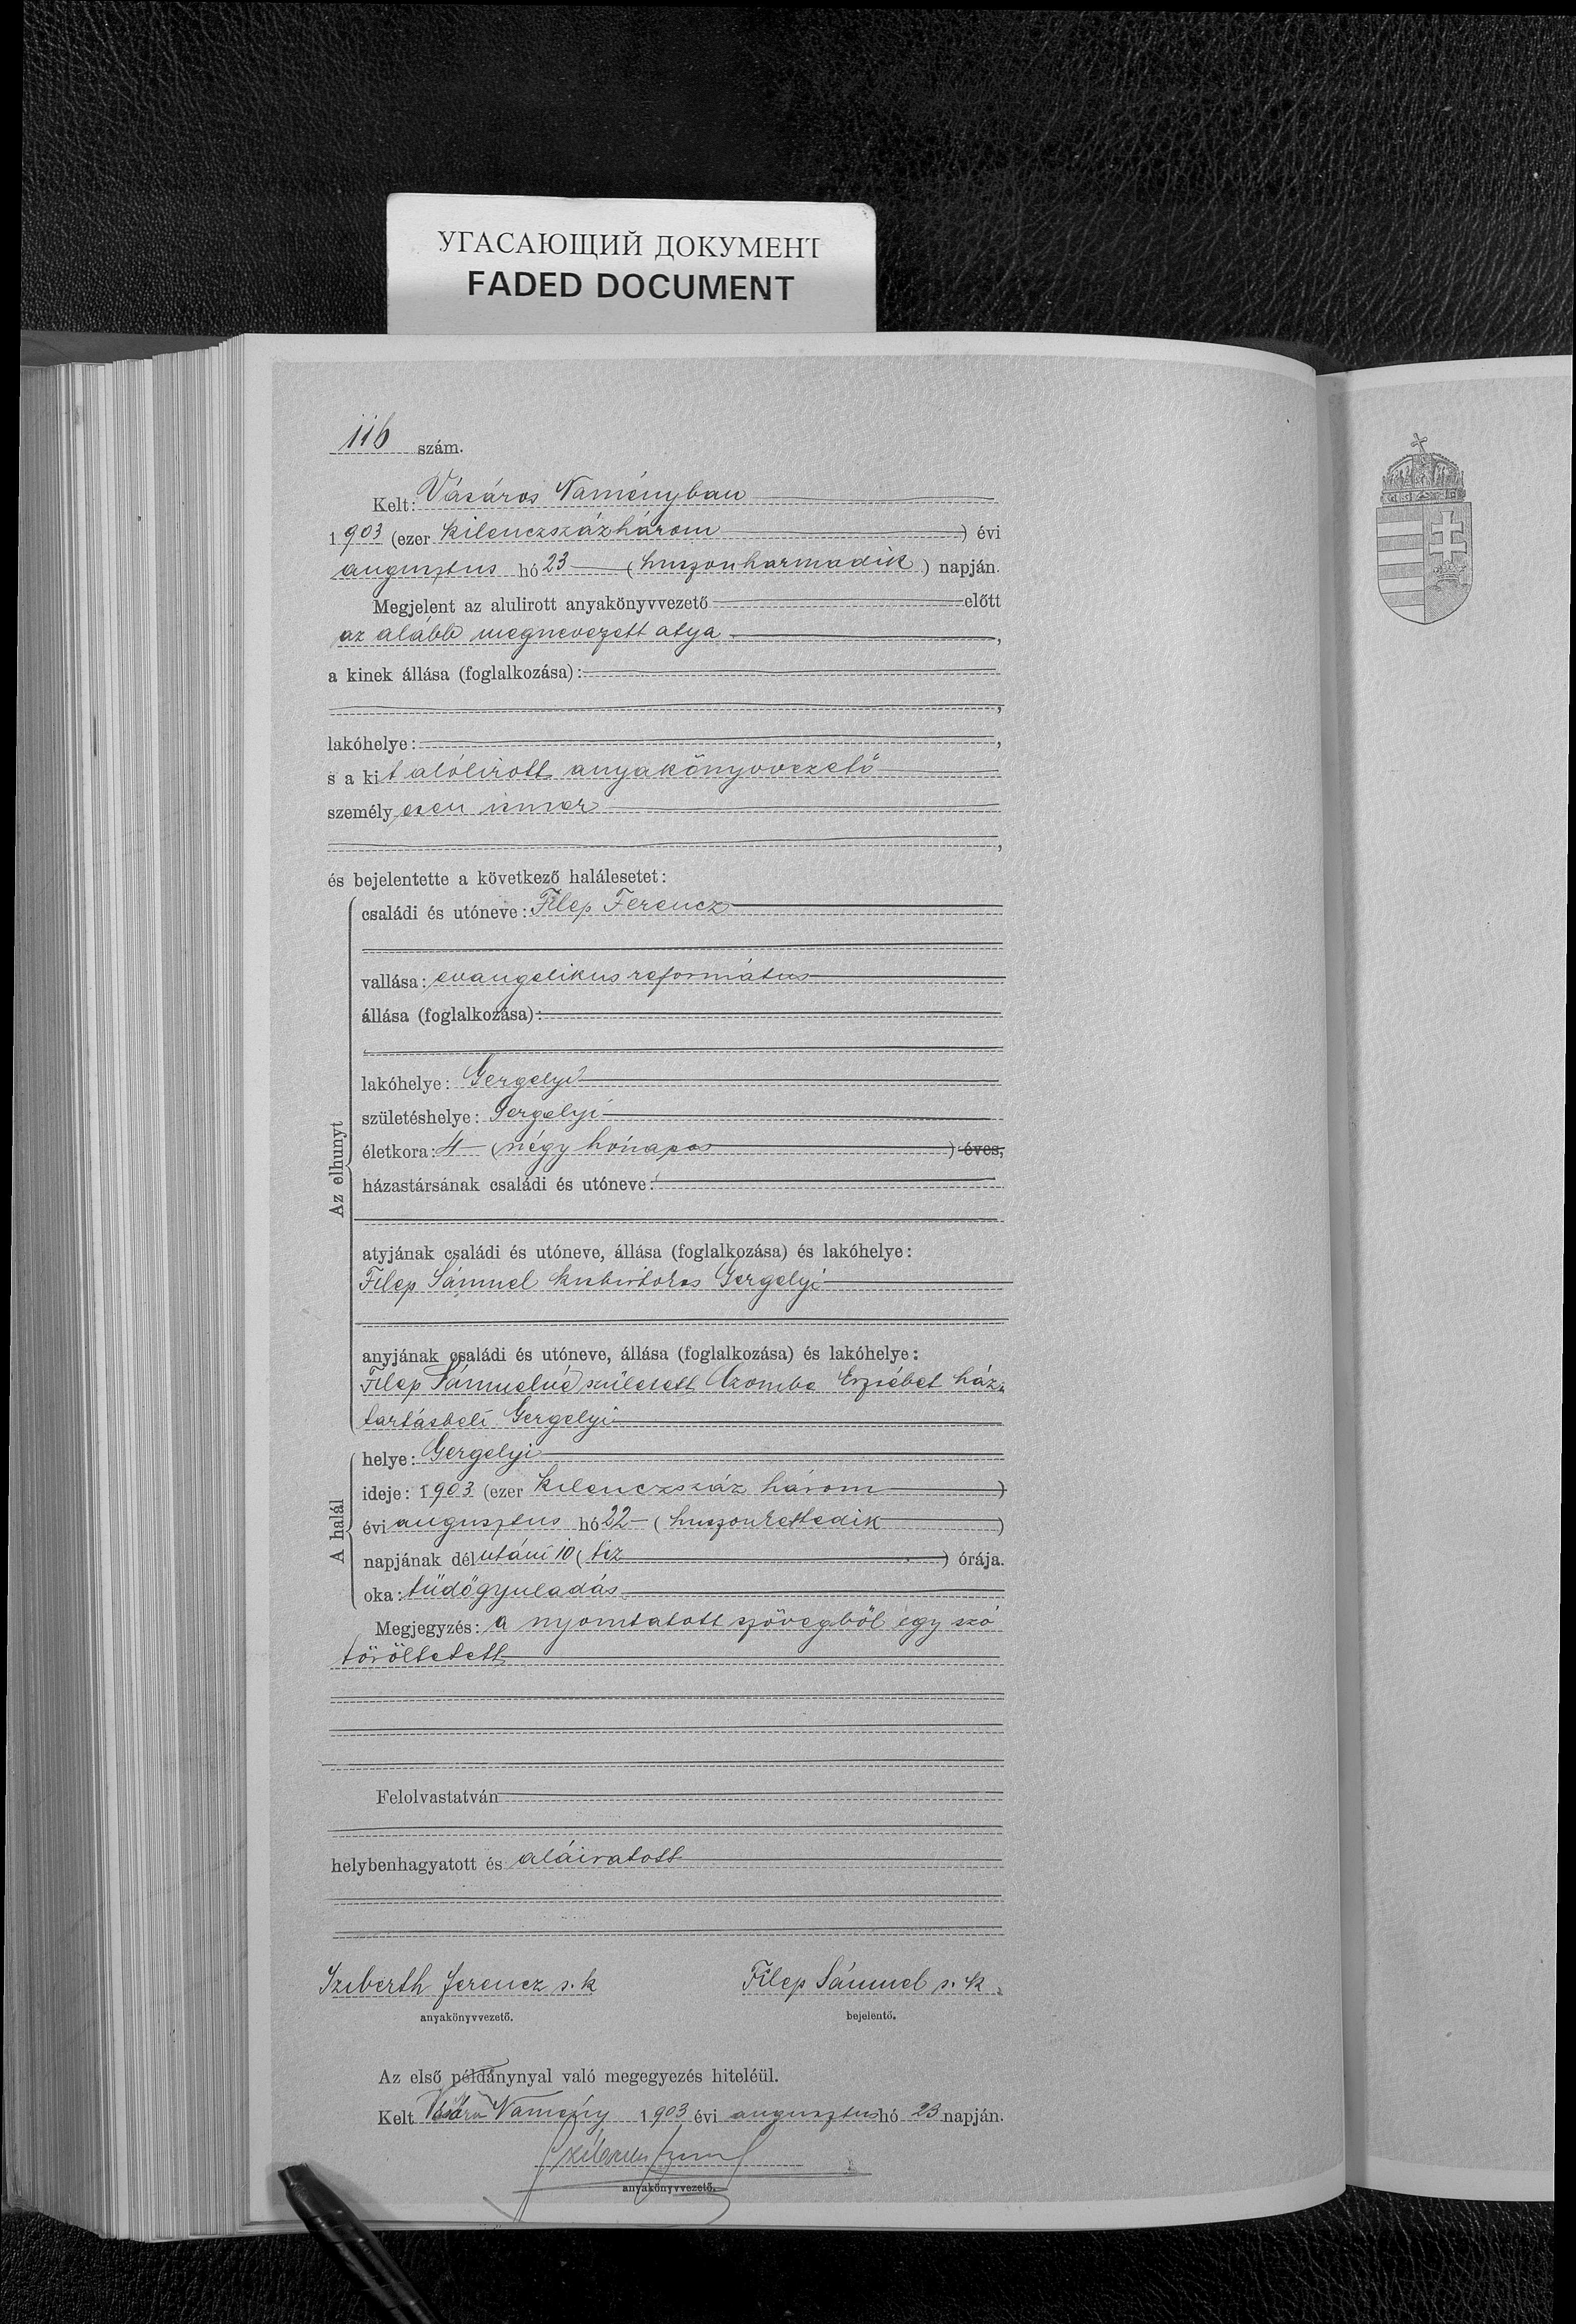 УГАСАЮЩИЙ ДОКУМЕНТ
FADED DOCUMENT
116 szám.
Kelt: Vásáros Naményban
1903 (ezer kilenczszázhárom) évi
augusztus hó 23 (huszonharmadik) napján.
Megjelent az alulirott anyakönyvvezető előtt
az alább megnevezett atya,
a kinek állása (foglalkozása):
,
lakóhelye: ,
s a kit alólirott anyakönyvvezető
személyesen ismer
,
és bejelentette a következő halálesetet:
Az elhunyt
családi és utóneve: Filep Ferencz
vallása: evangelikus református
állása (foglalkozása):
lakóhelye: Gergelyi
születéshelye: Gergelyi
életkora: 4 (négy hónapos) éves,
házastársának családi és utóneve:
atyjának családi és utóneve, állása (foglalkozása) és lakóhelye:
Filep Sámuel Gergelyi
anyjának családi és utóneve, állása (foglalkozása) és lakóhelye:
Filep Sámuelné született Erzsébet ház-
tartásbeli Gergelyi
A halál
helye: Gergelyi
ideje: 1903 (ezer kilenczszáz három)
évi augusztus hó 22 (huszonkettedik)
napjának délutáni 10 (tiz) órája.
oka: tüdőgyuladás
Megjegyzés: a nyomtatott szövegből egy szó
töröltetett
Felolvastatván
helybenhagyatott és aláiratott
Ferencz s. k Filep Sámuel s. k.
anyakönyvvezető. bejelentő.
Az első példánynyal való megegyezés hiteléül.
Kelt Namény 1903 évi augusztus hó 23 napján.
anyakönyvvezető.